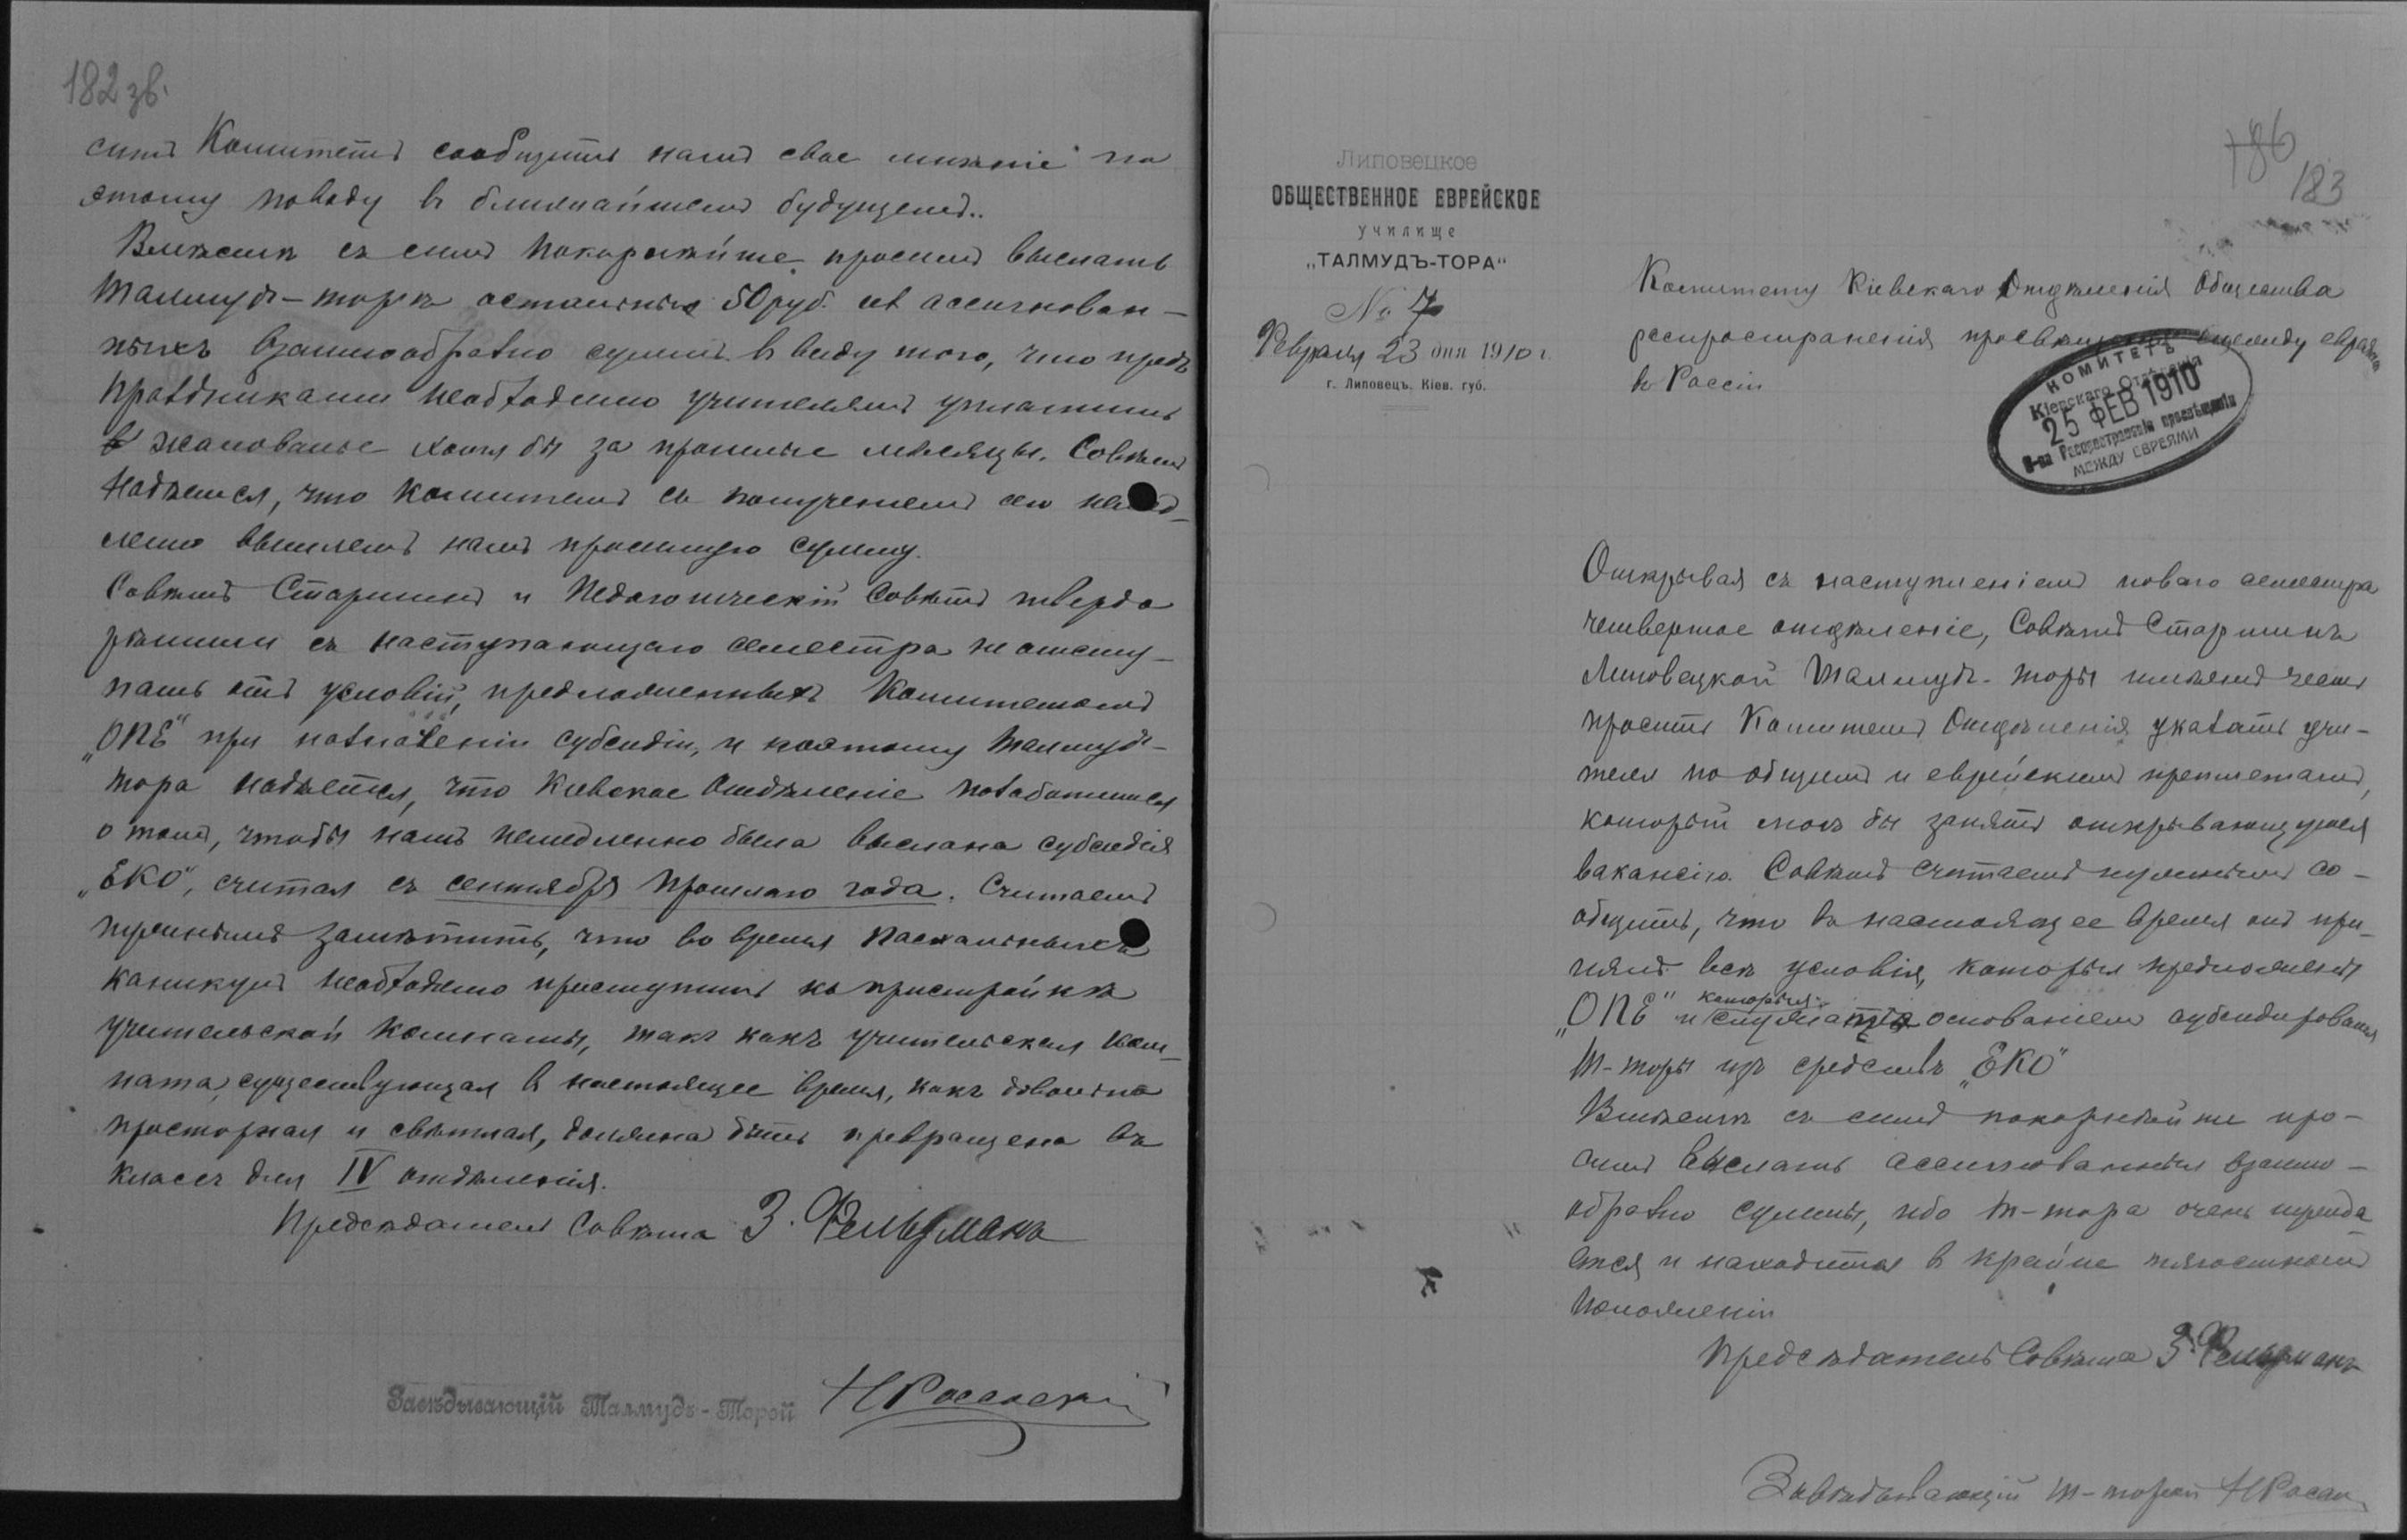 182 зв.
симъ Комитетъ сообщить намъ свое мнѣніе по
этому поводу въ ближайшемъ будущемъ..
Вмѣстѣ съ симъ покорнѣйше просимъ выслать
Талмудъ-торѣ остальныя 50 руб. изъ ассигнован-
ныхъ взаимообразно суммъ въ виду того, что предъ
праздниками необходимо учителямъ уплатить
жалованье хотя бы за прошлые мѣсяцы. Совѣтъ
надѣется, что Комитетъ съ полученіемъ сего немед-
ленно вышлетъ намъ просимую сумму.
Совѣтъ Старшинъ и Педагогическій Совѣтъ твердо
рѣшили съ наступающаго семестра не отсту-
пать отъ условій, предложенныхъ Комитетомъ
„ОПЕ" при назначеніи субсидіи, и поэтому Талмудъ-
тора надѣется, что Кіевское Отдѣленіе позаботится
о томъ, чтобы намъ немедленно была выслана субсидія
„ЕКО", считая съ сентября прошлаго года. Считаемъ
нужнымъ замѣтить, что во время пасхальныхъ
каникулъ необходимо приступить къ пристройкѣ
учительской комнаты, такъ какъ учительская ком-
ната, существующая въ настоящее время, какъ довольно
просторная и свѣтлая, должна быть превращена въ
классъ для IV отдѣленія.
Предсѣдатель Совѣта З. Фельдманъ
Завѣдывающій Талмудъ-Торой
186
183
Липовецкое
ОБЩЕСТВЕННОЕ ЕВРЕЙСКОЕ
училище
„ТАЛМУДЪ-ТОРА"
№ 7
Февраля 23 дня 1910 г.
г. Липовецъ. Кіев. губ.
Комитету Кіевскаго Отдѣленія Общества
распространенія просвѣщенія между евреями
въ Россіи
КОМИТЕТЪ
Кіевскаго Отдѣленія
25 ФЕВ 1910
О-ва Распространенія просвѣщенія
МЕЖДУ ЕВРЕЯМИ
Открывая съ наступленіемъ новаго семестра
четвертое отдѣленіе, Совѣтъ Старшинъ
Липовецкой Талмудъ-торы имѣетъ честь
просить Комитетъ Отдѣленія указать учи-
теля по общимъ и еврейскимъ предметамъ,
который могъ бы занять открывающуюся
вакансію. Совѣтъ считаетъ нужнымъ со-
общить, что въ настоящее время онъ при-
нялъ всѣ условія, которыя предложены
„ОПЕ" и которыя служатъ основаніемъ субсидированія
Т-торы изъ средствъ „ЕКО"
Вмѣстѣ съ симъ покорнѣйше про-
симъ выслать ассигнованныя взаимо-
образно суммы, ибо Т-тора очень нужда
ется и находится въ крайне тягостномъ
положеніи
Предсѣдатель Совѣта З. Фельдманъ
Завѣдывающій Т-торой